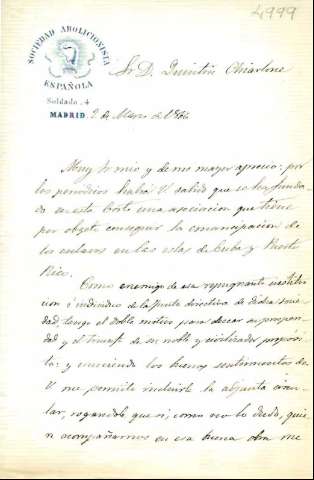 4999
SOCIEDAD ABOLICIONISTA
ESPAÑOLA
Soldado, 4
MADRID
Sr. D. Quintin Chiarlone
2 de Marzo de 1866
Muy Sr mio y de mi mayor aprecio: por
los periodicos habrá V sabido que se ha funda-
do en esta Corte una asociacion que tiene
por objeto conseguir la emancipacion de
los esclavos en las islas de Cuba y Puerto
Rico.
Como enemigo de esa repugnante institu-
cion é individuo de la Junta directiva de dicha Socie-
dad, tengo el doble motivo para desear su prosperi-
dad y el triunfo de su noble y civilizador proposi-
to: y conociendo los buenos sentimientos de
V me permito incluirle la adjunta circu-
lar, rogandole que si, como no lo dudo, quie-
re acompañarnos en esa buena obra me